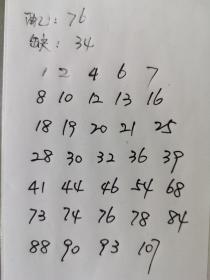 确乙：76
缺：34
1 2 4 6 7
8 10 12 13 16
18 19 20 21 25
28 30 32 36 39
41 44 46 54 68
73 74 76 78 84
88 90 93 107